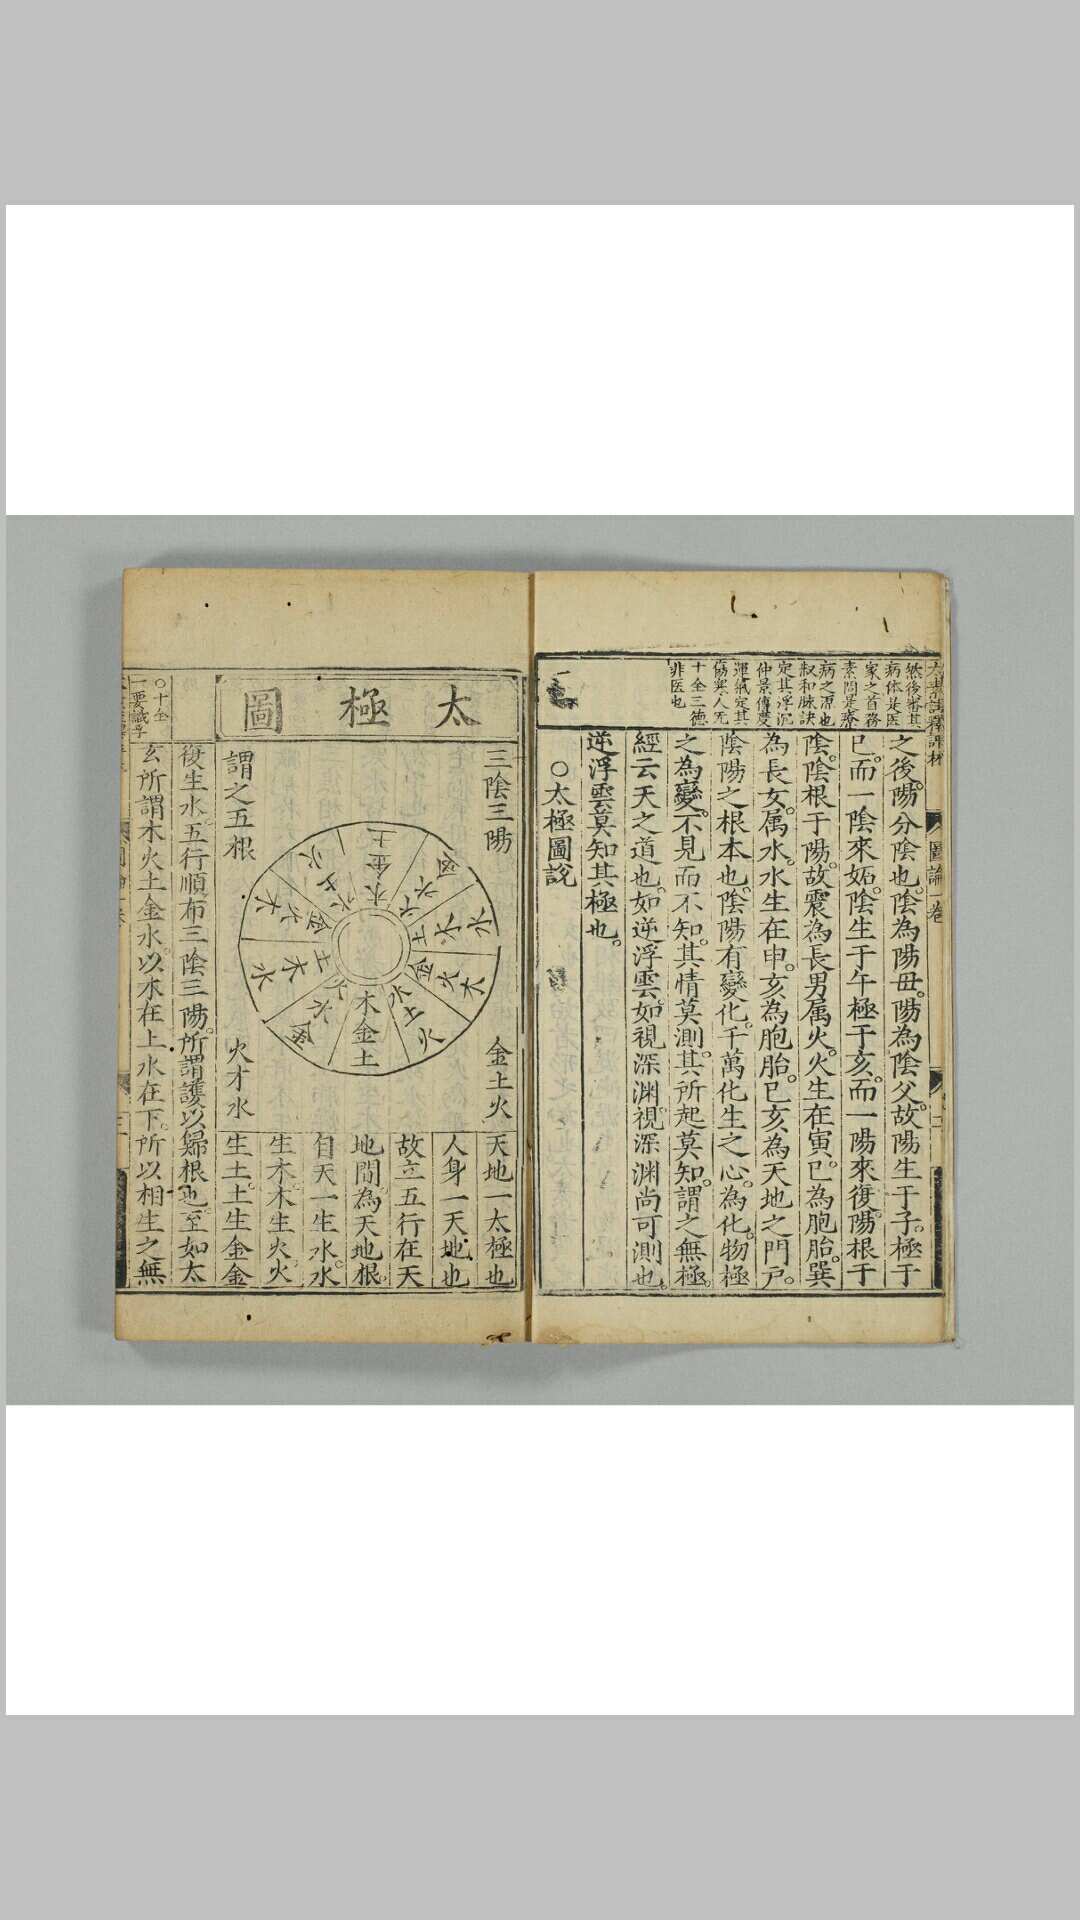 圖論一卷
然後審其
病体是医
家之首務
素問是療
病之源也
叔和脉訣
定其浮沉
仲景傷慶
運氣定其
傷寒人无
十全三德
非医也
之後。陽分陰也。陰為陽母。陽為陰父。故陽生于子。極于
巳。而一陰來姤。陰生于午。極于亥。而一陽來復。陽根于
陰。陰根于陽。故震為長男属火。火生在寅。巳為胞胎。巽
為長女。属水。水生在申。亥為胞胎。巳亥為天地之門戶。
陰陽之根本也。陰陽有變化。千萬化生之心。為化。物極
之為變。不見而不知。其情莫測。其所起莫知。謂之無極。
經云天之道也。如逆浮雲。如視深渊。視深渊尚可測也。
逆浮雲莫知其極也。
○太極圖說
太極圖
三陰三陽
金土火
謂之五根
火才水
木金土
天地一太極也
人身一天地也
故立五行在天
地間。為天地根。
自天一生水。水
生木。木生火。火
生土。土生金。金
復生水。五行順布三陰三陽。所謂護以歸根也。至如太
○十全
一要識乎
玄所謂木火土金水。以木在上水在下。所以相生之無